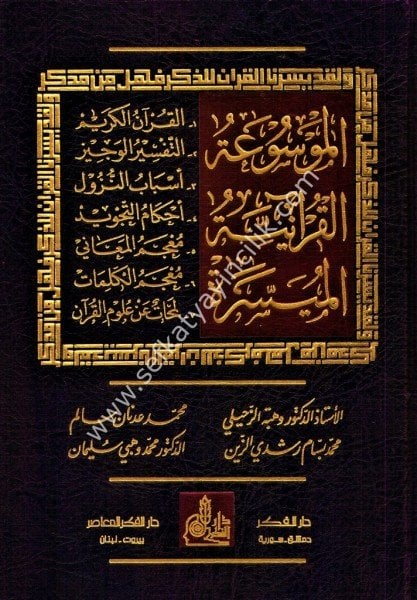 ولقد يسرنا القرآن للذكر فهل من مدكر
الموسوعة
القرآنية
الميسرة
١- القرآن الكريم
٢- التفسير الوجيز
٣- أسباب النزول
٤- أحكام التجويد
٥- معجم المعاني
٦- معجم الكلمات
٧- لمحات عن علوم القرآن
الأستاذ الدكتور وهبة الزحيلي
محمد عدنان سالم
محمد بسام رشدي الزين
الدكتور محمد وهبي سليمان
دار الفكر
دمشق - سورية
دار الفكر المعاصر
بيروت - لبنان
www.seikatyayincilik.com